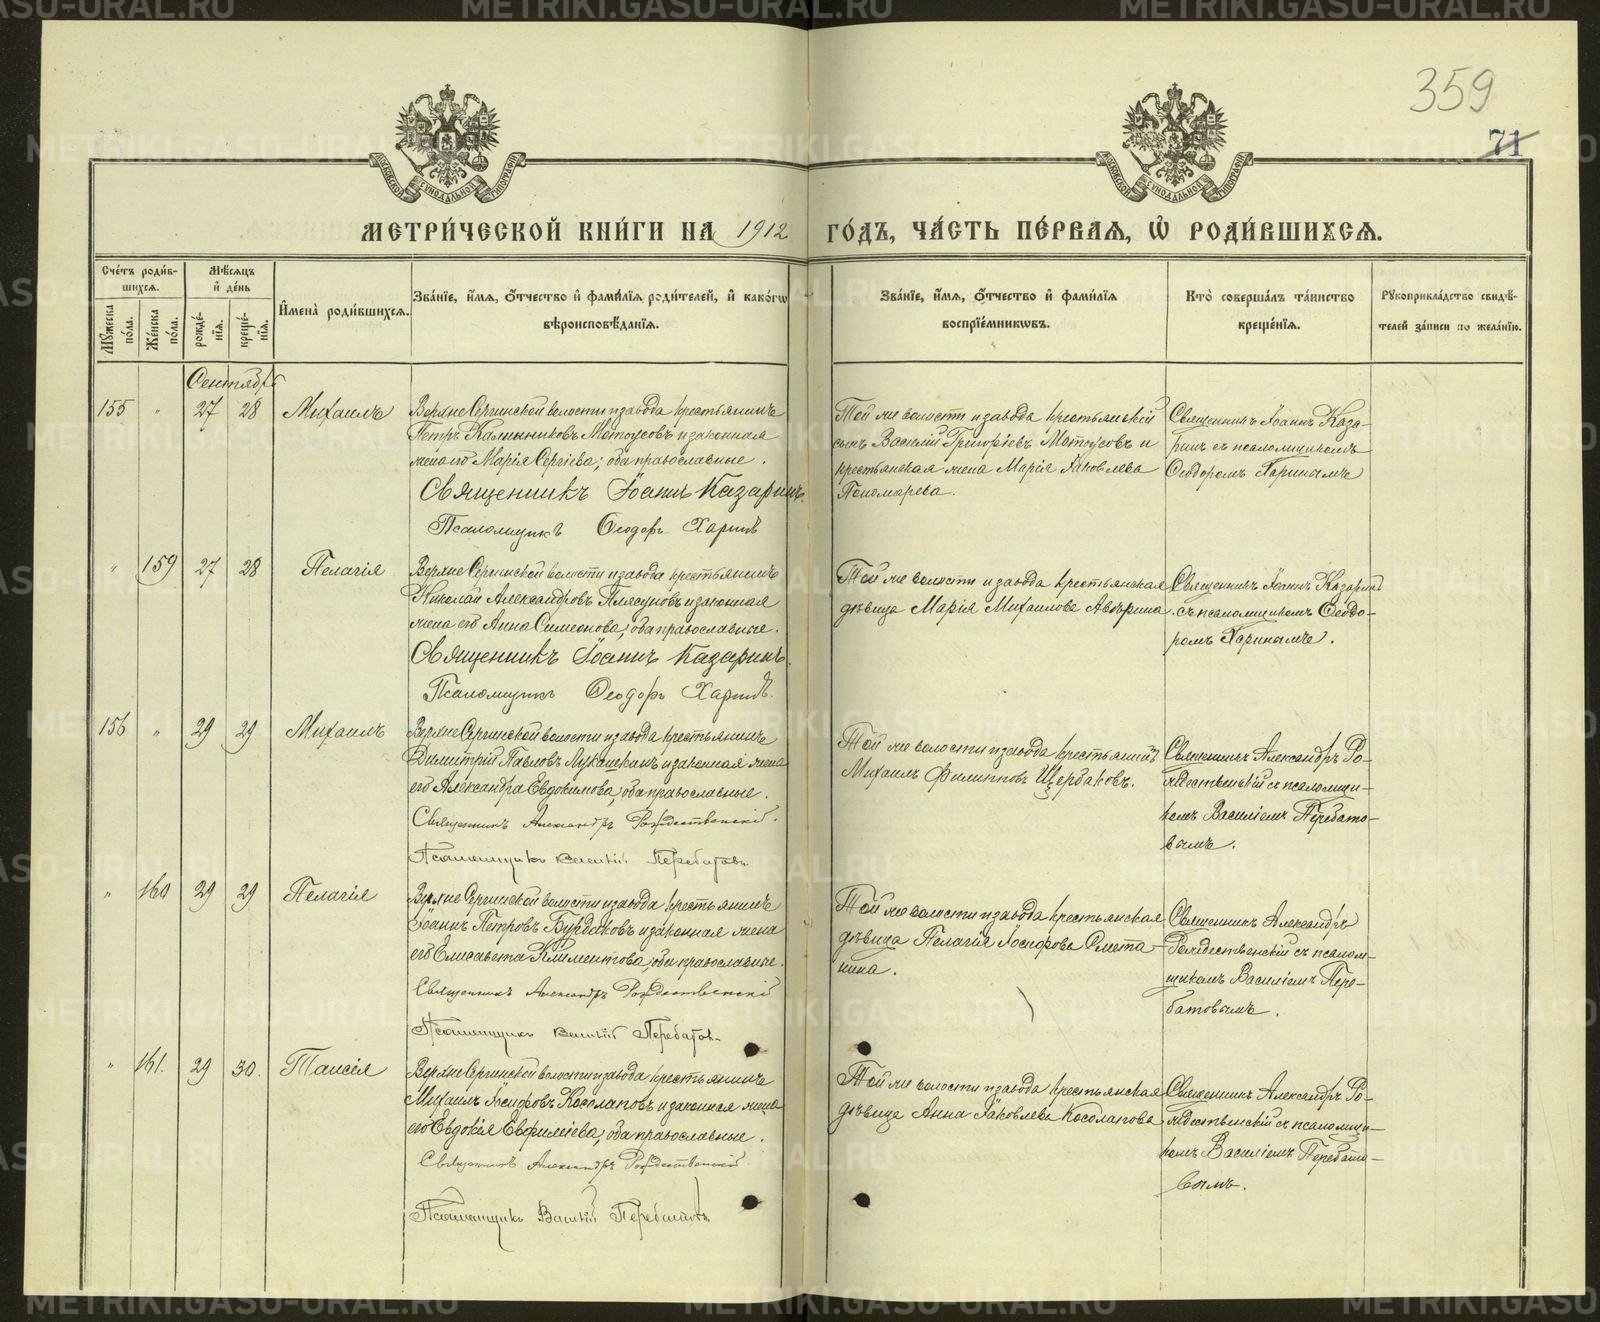 359
71
МОСКОВСКОЙ СѴНОДАЛЬНОЙ ТИПОГРАФІИ
МОСКОВСКОЙ СѴНОДАЛЬНОЙ ТИПОГРАФІИ
МЕТРИ́ЧЕСКОЙ КНИ́ГИ НА 1912 ГО́ДЪ, ЧА́СТЬ ПЕ́РВАЯ, Ѡ РОДИ́ВШИХСЯ.
Сче́тъ роди́в-
шихся.
Мѣ́сяцъ
и҆ де́нь
Мꙋ́жеска по́ла.
Же́нска по́ла.
рожде́-
нїя.
креще́-
нїя.
И҆мена̀ роди́вшихся.
Зва́нїе, и҆́мя, ѻ҆́тчество и҆ фами́лїя роди́телей, и҆ како́гѡ
вѣроисповѣ́данїя.
Зва́нїе, и҆́мя, ѻ҆́тчество и҆ фами́лїя
воспрїе́мникѡвъ.
Кто̀ соверша́лъ та́инство
креще́нїя.
Рꙋкоприкла́дство свидѣ́-
телей за́писи по жела́нїю.
Сентябрь
155 " 27 28 Михаилъ
Верхне Сергинской волости и завода крестьянинъ
Петръ Калинниковъ Мотоусовъ и законная
жена его Марія Сергіева; оба православные.
Священникъ Іоаннъ Казаринъ.
Псаломщикъ Ѳеодоръ Харинъ
Той же волости и завода крестьянской
сынъ Василій Григоріевъ Мотоусовъ и
крестьянская жена Марія Яковлева
Пономарева.
Священникъ Іоаннъ Каза-
ринъ съ псаломщикомъ
Ѳеодоромъ Харинымъ
" 159 27 28 Пелагія
Верхне Сергинской волости и завода крестьянинъ
Николай Александровъ Плясуновъ и законная
жена его Анна Симеонова; оба православные.
Священникъ Іоаннъ Казаринъ.
Псаломщикъ Ѳеодоръ Харинъ.
Той же волости и завода крестьянская
дѣвица Марія Михаилова Аверина.
Священникъ Іоаннъ Казаринъ
съ псаломщикомъ Ѳеодо-
ромъ Харинымъ.
156 " 29 29 Михаилъ
Верхне Сергинской волости и завода крестьянинъ
Димитрій Павловъ Лукашканъ и законная жена
его Александра Евдокимова; оба православные.
Священникъ Александръ Рождественскій.
Псаломщикъ Василій Перебатовъ
Той же волости и завода крестьянинъ
Михаилъ Филипповъ Щербаковъ.
Священникъ Александръ Ро-
ждественскій съ псаломщи-
комъ Василіемъ Перебато-
вымъ.
" 160 29 29 Пелагія
Верхне Сергинской волости и завода крестьянинъ
Іоаннъ Петровъ Бурдаковъ и законная жена
его Елисавета Климентова; оба православные.
Священникъ Александръ Рождественскій
Псаломщикъ Василій Перебатовъ.
Той же волости и завода крестьянская
дѣвица Пелагія Іосифова Смета-
нина.
Священникъ Александръ
Рождественскій съ псалом-
щикомъ Василіемъ Пере-
батовымъ.
" 161. 29 30. Таисія
Верхне Сергинской волости и завода крестьянинъ
Михаилъ Іосифовъ Косолаповъ и законная жена
его Евдокія Евфиміева; оба православные.
Священникъ Александръ Рождественскій
Псаломщикъ Василій Перебатовъ
Той же волости и завода крестьянская
дѣвица Анна Яковлева Косолапова
Священникъ Александръ Ро-
ждественскій съ псаломщи-
комъ Василіемъ Перебато-
вымъ.
METRIKI.GASO-URAL.RU